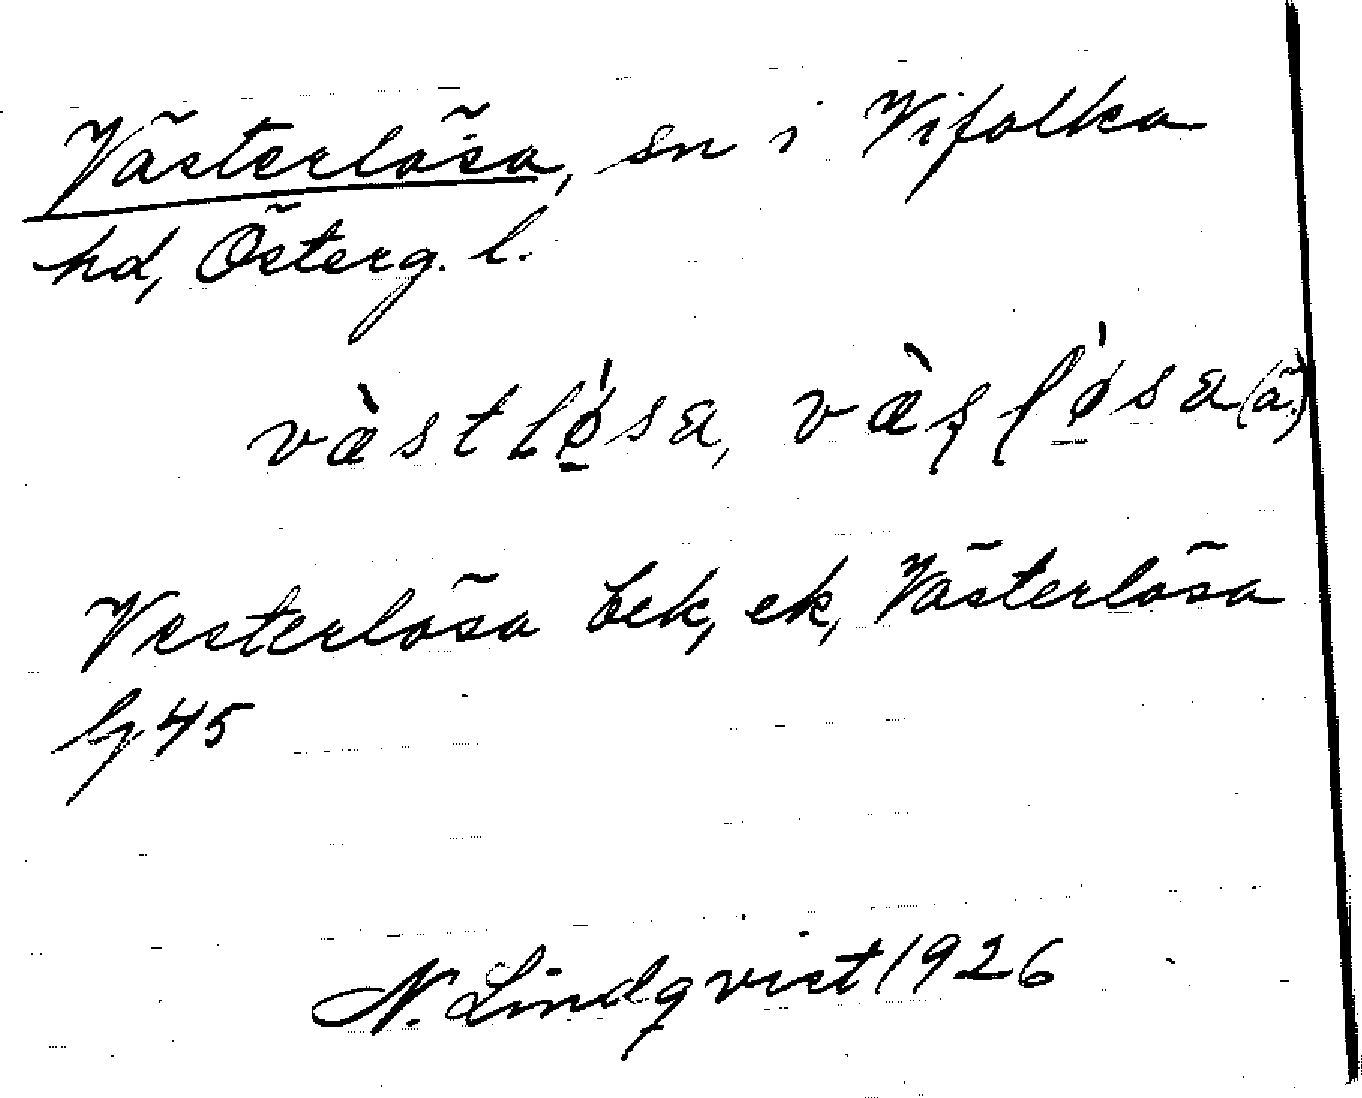 Västerlösa, sn i Vifolka
hd, Österg. l.
vàstlǿsa, vàslǿsa (ä.)
Vesterlösa bek, ek, Västerlösa
G 45
N. Lindqvist 1926